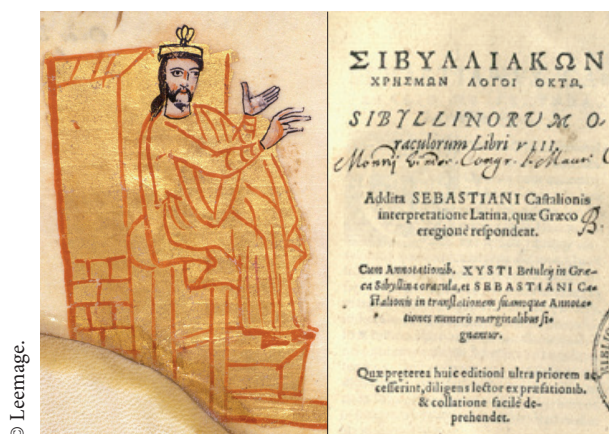 © Leemage.
ΣΙΒΥΛΛΙΑΚΩΝ
ΧΡΗΣΜΩΝ ΛΟΓΟΙ ΟΚΤΩ.
SIBYLLINORVM O-
raculorum Libri VIII.
Addita SEBASTIANI Castalionis
interpretatione Latina, quæ Græco
eregione respondeat.
Cum Annotationib. XYSTI Betuleij in Græ-
ca Sibyllina oracula, et SEBASTIANI Ca-
stalionis in translationem suam: quæ Annota-
tiones numeris marginalibus si-
gnantur.
Quæ præterea huic editioni ultra priorem ac
cesserint, diligens lector ex præfationib.
& collatione facilè de-
prehendet.